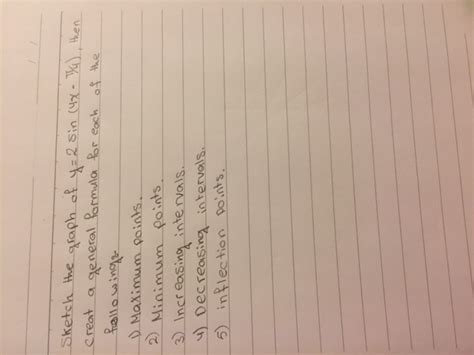 Sketch the graph of y = 2 sin (4x - π/4), then
creat a general formula for each of the
followings
1) Maximum points.
2) Minimum points.
3) Increasing intervals.
4) Decreasing intervals.
5) inflection points.